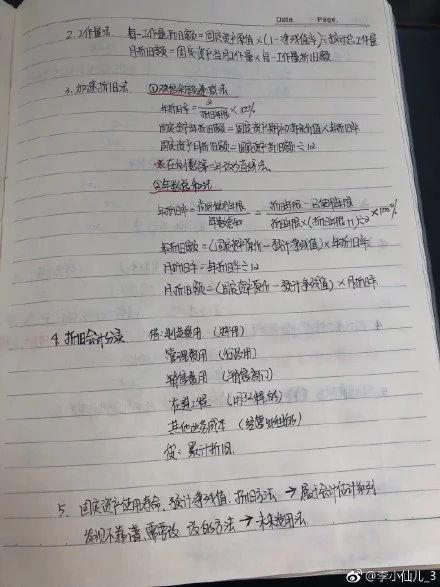 Date. Page.
2.工作量法 每一工作量折旧额=固定资产原值×(1-净残值率)÷预计总工作量
月折旧额=固定资产当月工作量×每一工作量折旧额
3.加速折旧法 ①双倍余额递减法
年折旧率=2/折旧年限×100%
固定资产年折旧额=固定资产期初账面价值×年折旧率
固定资产月折旧额=固定资产年折旧额÷12
※在倒数第二年改为直线法.
②年数总和法
年折旧率=尚可使用年限/年数总和=折旧年限-已使用年限/折旧年限×(折旧年限+1)÷2×100%
年折旧额=(固定资产原价-预计净残值)×年折旧率
月折旧率=年折旧率÷12
月折旧额=(固定资产原价-预计净残值)×月折旧率.
4.折旧会计分录 借:制造费用(所用)
管理费用(行政用)
销售费用(销售部门)
在建工程
其他业务成本(经营出租的)
贷:累计折旧.
5.固定资产使用寿命、预计净残值、折旧方法→属于会计估计
发现不靠谱,需要改 改的方法→未来适用法.
@李小仙儿_3